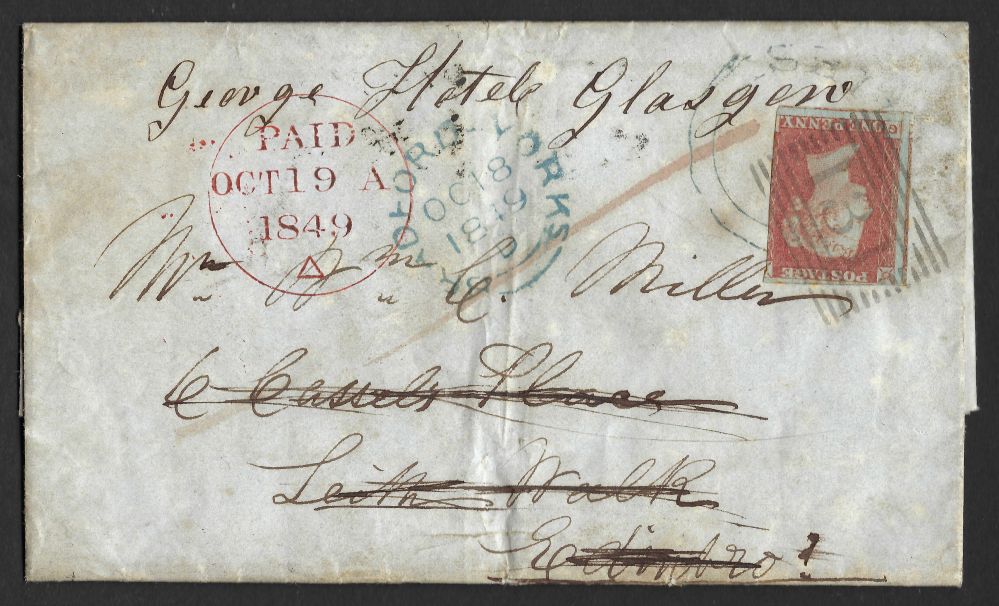 George Hotel Glasgow
PAID
OCT 19 A
1849
BRADFORD YORKS
OC 18
1849
D
ONE PENNY
POSTAGE
Mr Wm C. Miller
6 Cassels Place
Leith Walk
Edinbro'